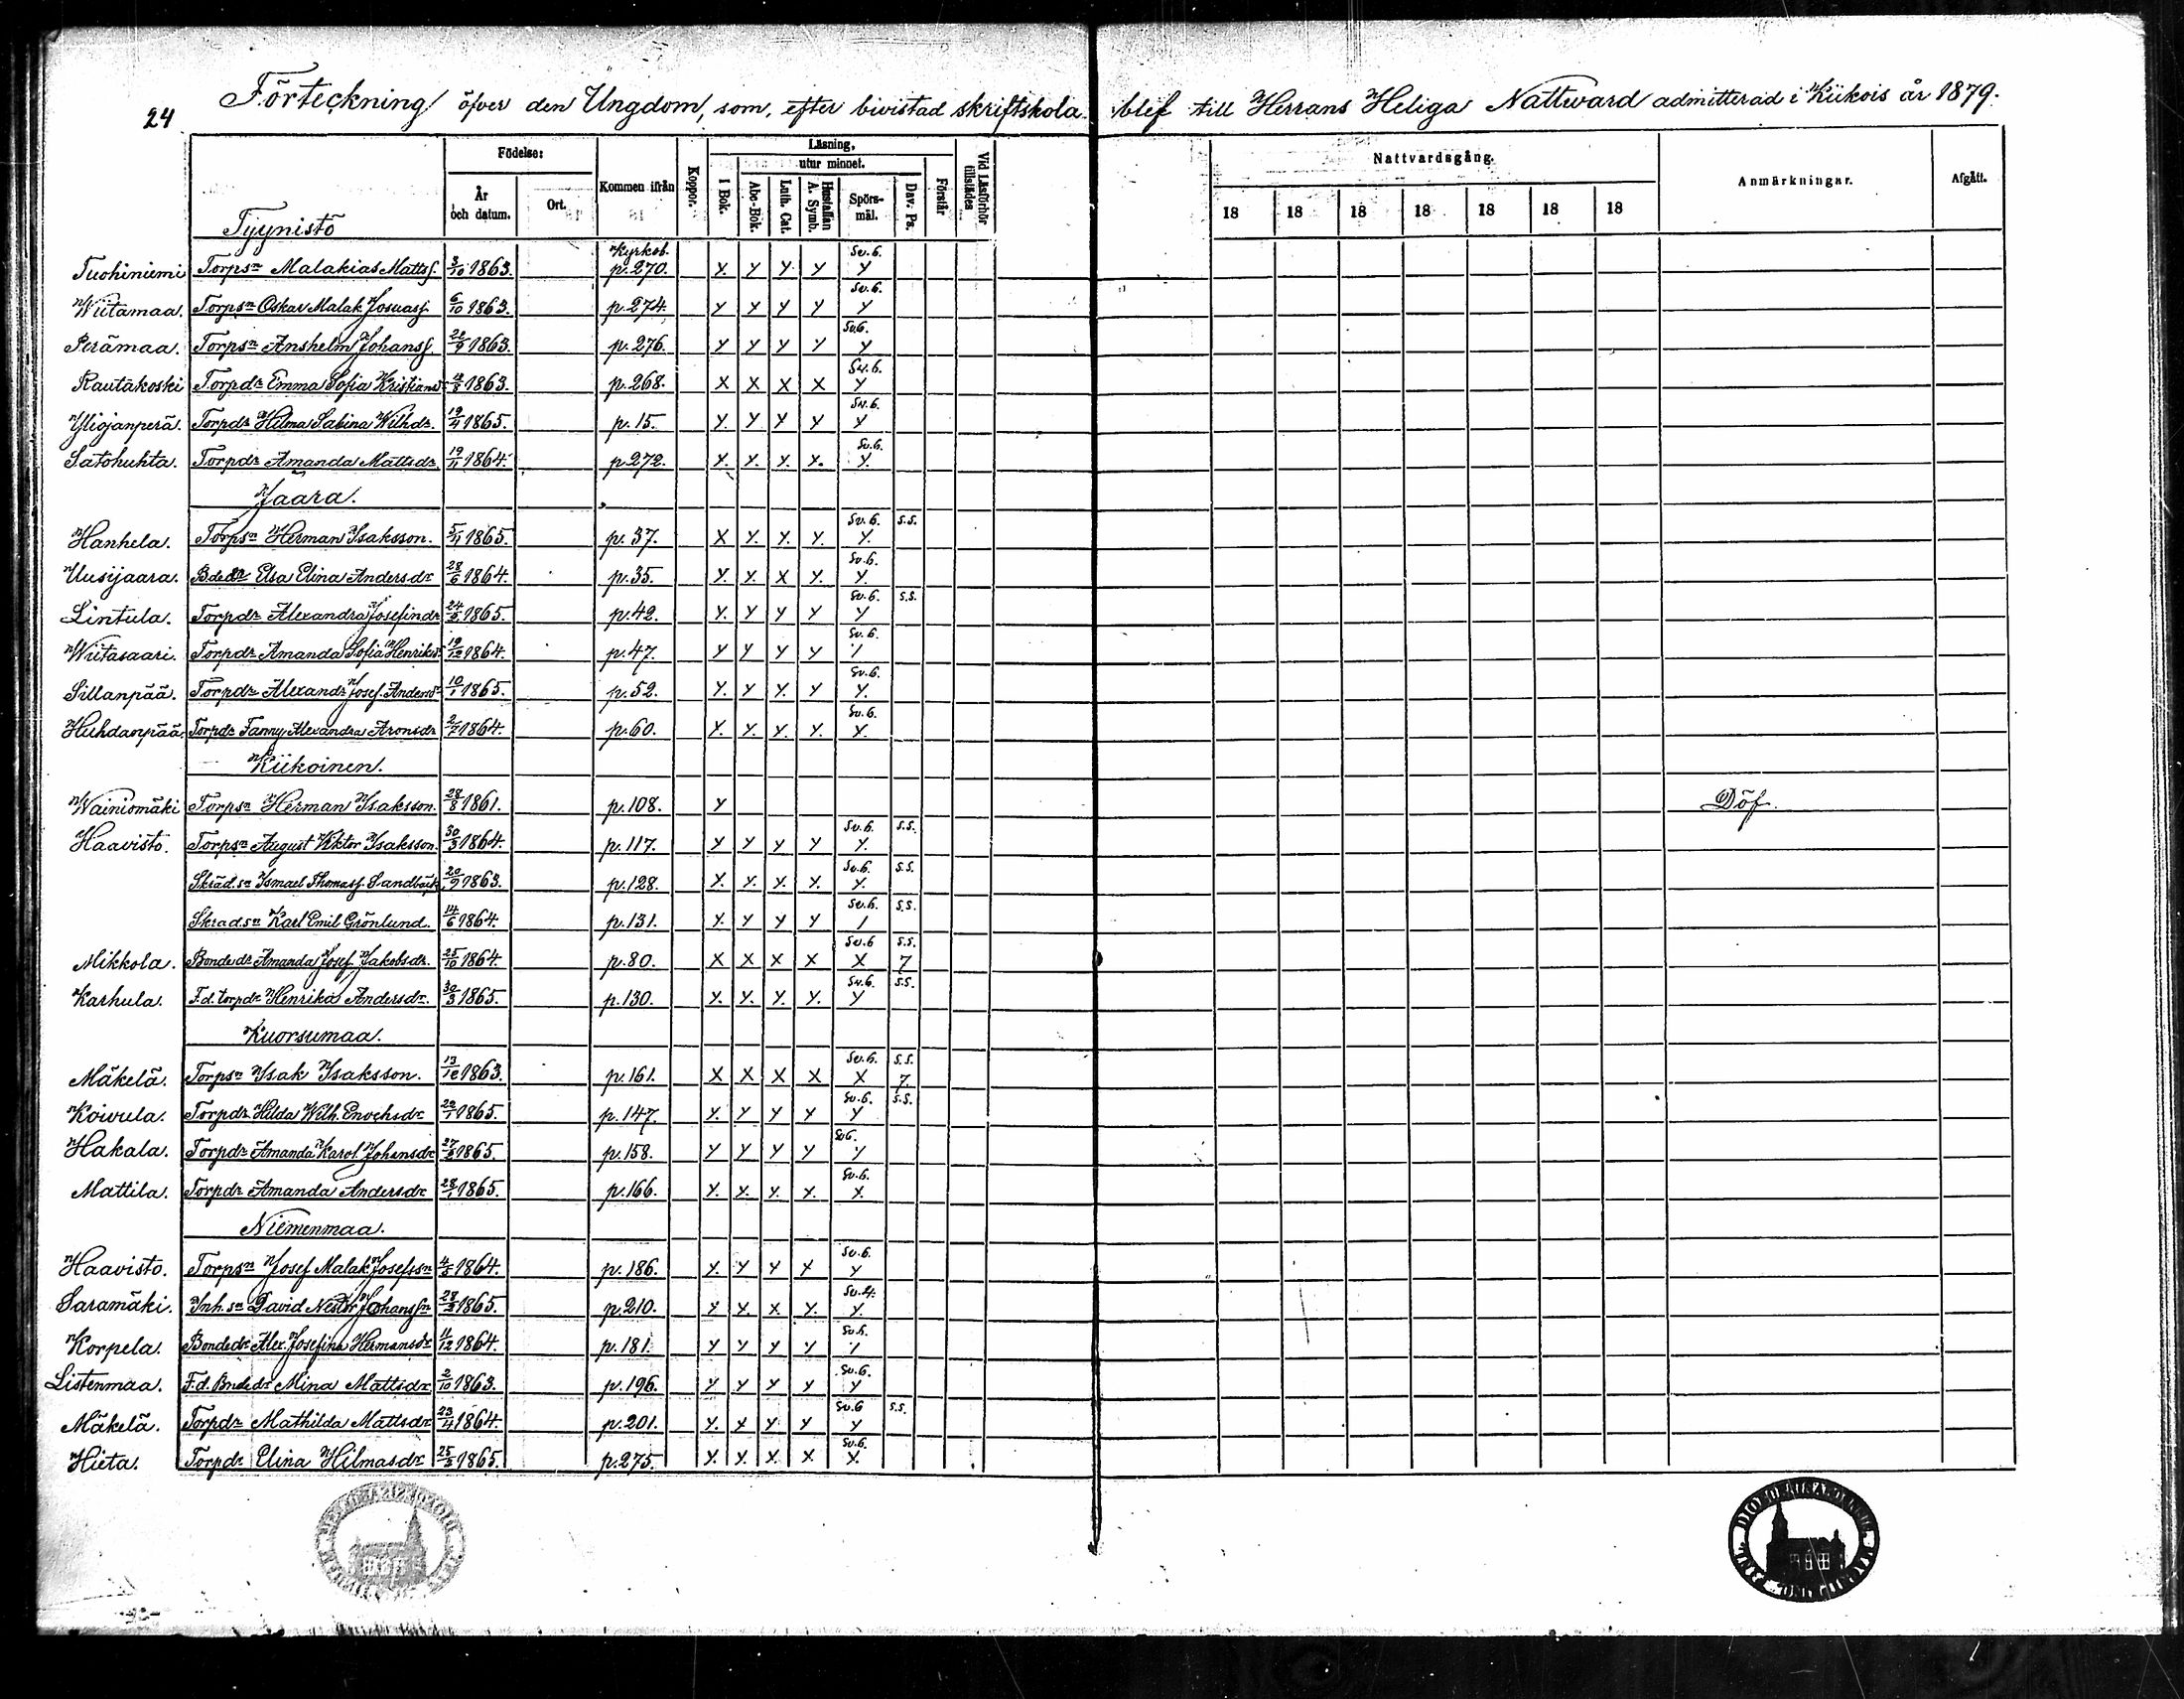 24 Förteckning öfver den Ungdom, som, efter bivistad skriftskola blef till Herrans Heliga Nattward admitterad i Kiikois år 1879.
Födelse: Kommen ifrån Koppor. Läsning, Vid Läsförhör tillstädes Nattvardsgång. Anmärkningar. Afgått.
utur minnet.
År och datum. Ort. I Bok. Abc-Bok. Luth. Cat. Hustaflan A. Symb. Spörsmål. Dav. Ps. Förstår 18 18 18 18 18 18 18
Tyynistö
Tuohiniemi Torpsn Malakias Mattsf. 3/10 1863. Kyrkob. p. 270. Y. Y Y Y Sv. 6. Y
Wiitamaa. Torpsn Oskar Malak. Josuasf. 6/10 1863. p. 274. Y Y Y Y Sv. 6. Y
Perämaa. Torpsn Anshelm Johansf. 1863. p. 276. Y Y Y Y Sv. 6. Y
Rautakoski Torpdr Emma Sofia Kristiansdr 1863. p. 268. X X X X Sv. 6. Y
Yliojanperä. Torpdr Hilma Sabina Wilhdr. 19/4 1865. p. 15. Y Y Y Y Sv. 6. Y
Satohuhta. Torpdr Amanda Mattsdr. 19/11 1864. p. 272. Y. Y. Y. Y. Sv. 6. Y.
Jaara.
Hanhela. Torpsn Herman Isaksson. 1865. p. 37. X Y. Y. Y. Sv. 6. Y. s.s.
Uusijaara. Bdedr Elsa Elina Andersdr 28/6 1864. p. 35. Y. Y. X Y. Sv. 6. Y.
Lintula. Torpdr Alexandra Josefindr 1865. p. 42. Y. Y Y Y Sv. 6. Y s.s.
Wiitasaari. Torpdr Amanda Sofia Henriksdr 19/12 1864. p. 47. Y Y Y Y Sv. 6. Y
Sillanpää. Torpdr Alexandr. Josef. Andersdr 10/1 1865. p. 52. Y. Y Y. Y Sv. 6. Y.
Huhdanpää. Torpdr Fanny Alexandra Aronsdr 2/7 1864. p. 60. Y. Y. Y. Y. Sv. 6. Y.
Kiikoinen.
Wainiomäki Torpsn Herman Isaksson. 28/8 1861. p. 108. Y Döf.
Haavisto. Torpsn August Viktor Isaksson. 30/3 1864. p. 117. Y Y Y Y Sv. 6. Y. s.s.
Skräd.sn Ismael Thomasf. Sandbäck 20/9 1863. p. 128. Y. Y. Y. Y. Sv. 6. Y. s.s.
Skräd.sn Karl Emil Grönlund. 14/6 1864. p. 131. Y. Y Y Y Sv. 6. s.s.
Mikkola. Bondedr Amanda Josef. Jakobsdr. 25/10 1864. p. 80. X X X X Sv. 6 X s.s. 7
Karhula. F.d. torpdr Henrika Andersdr. 30/3 1865. p. 130. Y. Y. Y. Y. Sv. 6. Y s.s.
Kuorsumaa.
Mäkelä. Torpsn Isak Isaksson. 13/12 1863. p. 161. X X X X Sv. 6. X s.s. 7.
Koivula. Torpdr Hilda Wilh. Enochsdr 22/1 1865. p. 147. Y. Y Y Y Sv. 6. Y s.s.
Hakala. Torpdr Amanda Karol. Johansdr 1865. p. 158. Y Y Y Y Sv 6. Y
Mattila. Torpdr Amanda Andersdr 28/1 1865. p. 166. Y. Y. Y. Y. Sv. 6. Y.
Niemenmaa.
Haavisto. Torpsn Josef Malak. Josefssn 1864. p. 186. Y. Y Y Y Sv. 6. Y
Saramäki. Inh.sn David Nestor Johansfn 1865. p. 210. Y Y. X Y. Sv. 4. Y.
Korpela. Bondedr Alex. Josefina Hermansdr 11/12 1864. p. 181. Y Y Y Y Sv. 6. Y
Listenmaa. F.d. Bndedr Mina Mattsdr 2/10 1863. p. 196. Y Y Y Y Sv. 6. Y
Mäkelä. Torpdr Mathilda Mattsdr 23/4 1864. p. 201. Y. Y Y Y Sv. 6 Y s.s.
Hieta. Torpdr Elina Hilmasdr 1865. p. 275. Y. Y. Y. Y Sv. 6. Y.